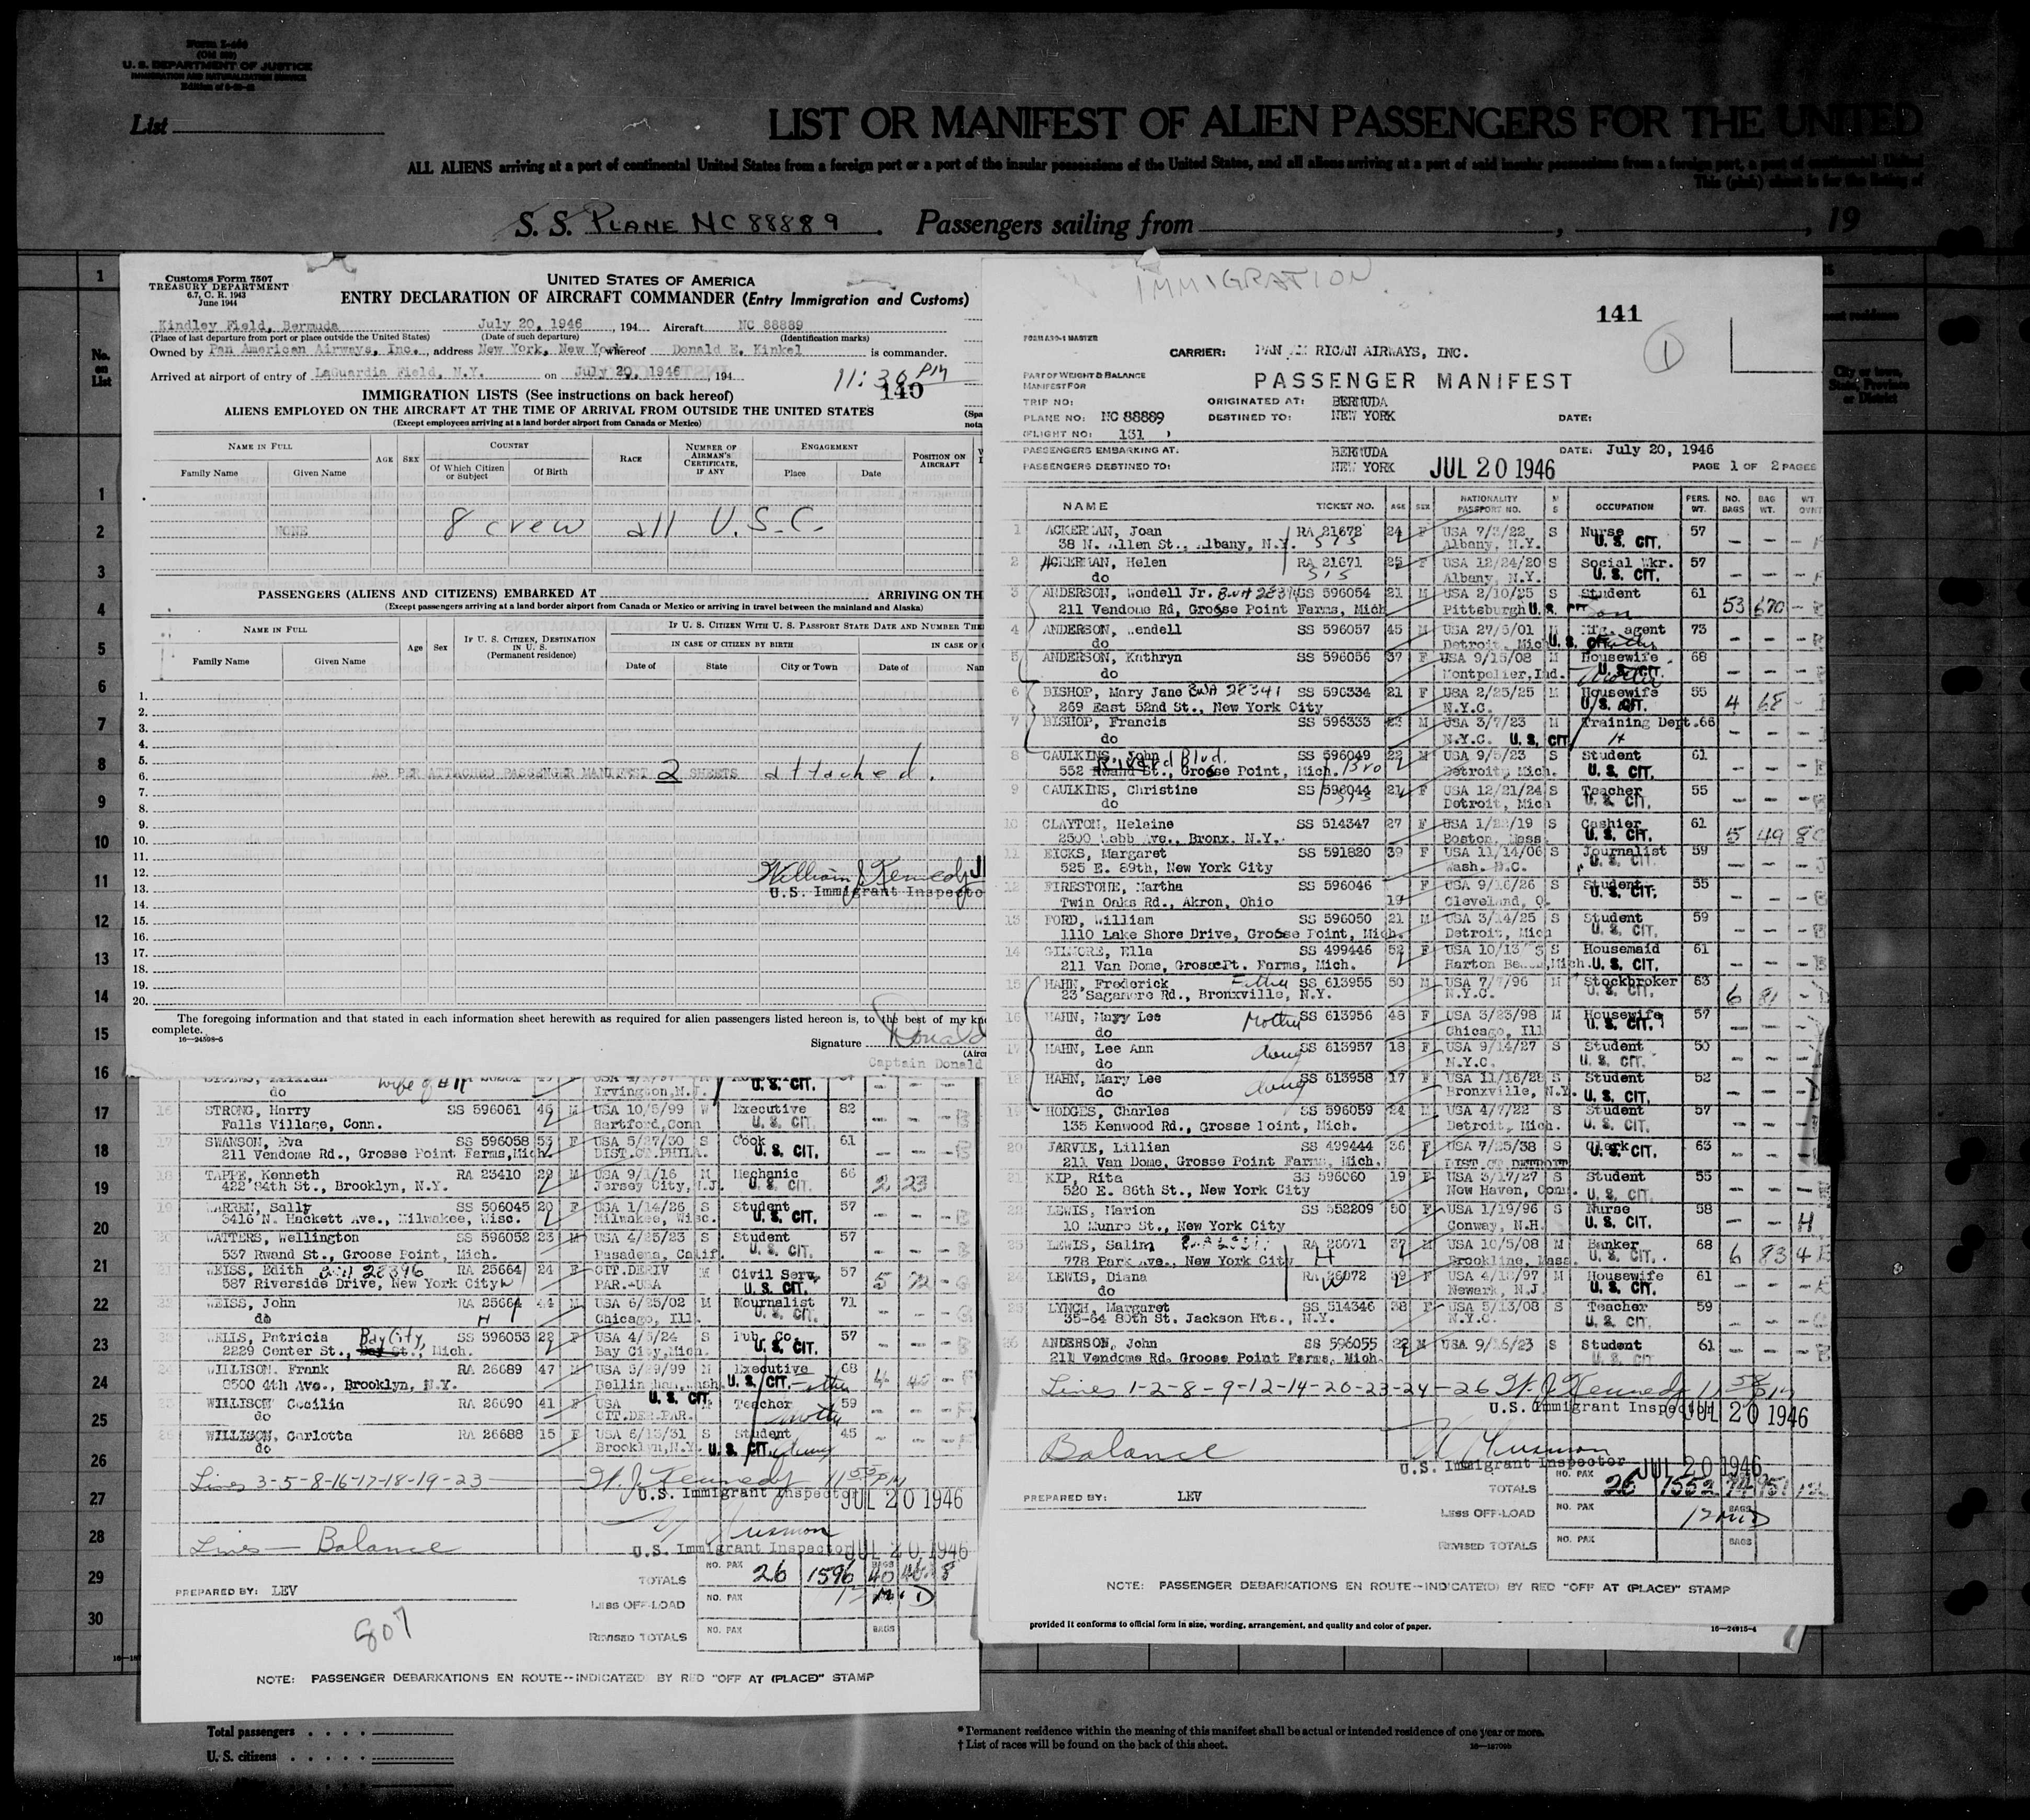 Form I-466
U. S. DEPARTMENT OF JUSTICE
IMMIGRATION AND NATURALIZATION SERVICE
List
LIST OR MANIFEST OF ALIEN PASSENGERS FOR THE UNITED
ALL ALIENS arriving at a port of continental United States from a foreign port or a port of the insular possessions of the United States, and all aliens arriving at a port of said insular possessions from a foreign port, a port of continental United
This (pink) sheet is for the listing of
S. S. PLANE NC 88889. Passengers sailing from , , 19
No. on List
Customs Form 7507
TREASURY DEPARTMENT
6.7, C. R. 1943
June 1944
UNITED STATES OF AMERICA
ENTRY DECLARATION OF AIRCRAFT COMMANDER (Entry Immigration and Customs)
Kindley Field, Bermuda July 20, 1946, 194 Aircraft NC 88889
(Place of last departure from port or place outside the United States) (Date of such departure) (Identification marks)
Owned by Pan American Airways, Inc., address New York, New York whereof Donald E. Kinkel is commander.
Arrived at airport of entry of LaGuardia Field, N.Y. on July 20, 1946, 194 11:30 PM
140
IMMIGRATION LISTS (See instructions on back hereof)
ALIENS EMPLOYED ON THE AIRCRAFT AT THE TIME OF ARRIVAL FROM OUTSIDE THE UNITED STATES
(Except employees arriving at a land border airport from Canada or Mexico)
NAME IN FULL AGE SEX COUNTRY RACE NUMBER OF AIRMAN'S CERTIFICATE, IF ANY ENGAGEMENT POSITION ON AIRCRAFT
Family Name Given Name Of Which Citizen or Subject Of Birth Place Date
NONE 8 crew all U.S.C.
PASSENGERS (ALIENS AND CITIZENS) EMBARKED AT ARRIVING ON TH
(Except passengers arriving at a land border airport from Canada or Mexico or arriving in travel between the mainland and Alaska)
NAME IN FULL Age Sex IF U. S. CITIZEN, DESTINATION IN U. S. (Permanent residence) IF U. S. CITIZEN WITH U. S. PASSPORT STATE DATE AND NUMBER THE
IN CASE OF CITIZEN BY BIRTH IN CASE OF
Family Name Given Name Date of State City or Town Date of Nam
1.
2.
3.
4.
5.
6. AS PER ATTACHED PASSENGER MANIFEST 2 SHEETS attached.
7.
8.
9.
10.
11.
12. William J Kennedy
13. U.S. Immigrant Inspecto
14.
15.
16.
17.
18.
19.
20.
The foregoing information and that stated in each information sheet herewith as required for alien passengers listed hereon is, to the best of my kno
complete.
16—24598-5
Signature Donald
Captain Donald
wife of
do Irvington, N.J. U. S. CIT.
16 STRONG, Harry SS 596061 46 M USA 10/5/99 W Executive 82
Falls Village, Conn. Hartford, Conn U. S. CIT.
17 SWANSON, Eva SS 596058 53 F USA 5/27/30 S Cook 61
211 Vendome Rd., Grosse Point Farms, Mich. DIST.CT.PHILA. U. S. CIT.
18 TAPPE, Kenneth RA 23410 29 M USA 9/1/16 M Mechanic 66
422 84th St., Brooklyn, N.Y. Jersey City, N.J. U. S. CIT. 2 23
19 WARREN, Sally SS 506045 20 F USA 1/14/26 S Student 57
3416 N. Hackett Ave., Milwakee, Wisc. Milwakee, Wisc. U. S. CIT.
20 WATTERS, Wellington SS 596052 23 M USA 4/25/23 S Student 57
537 Rwand St., Groose Point, Mich. Pasadena, Calif. U. S. CIT.
21 WEISS, Edith 28396 RA 25664 24 F CIT.DERIV M Civil Serv. 57 5 72
587 Riverside Drive, New York City W PAR.-USA U. S. CIT.
22 WEISS, John RA 25664 44 M USA 6/25/02 M Mournalist 71
do H Chicago, Ill. U. S. CIT.
23 WELLS, Patricia Bay City, SS 596053 22 F USA 4/5/24 S Pub. Co. 57
2229 Center St., Bay St., Mich. Bay City, Mich. U. S. CIT.
24 WILLISON, Frank RA 26689 47 M USA 5/9/99 M Executive 68
8500 4th Ave., Brooklyn, N.Y. U. S. CIT.
25 WILLISON Cecilia RA 26690 41 F USA U. S. CIT. Teacher 59
do CIT.DER.PAR. Mother
26 WILLISON, Carlotta RA 26688 15 F USA 6/13/31 S Student 45
do Brooklyn, N.Y. U. S. CIT.
Lines 3-5-8-16-17-18-19-23 W. J. Kennedy 11 55 PM
U.S. Immigrant Inspector JUL 20 1946
Lines — Balance
U.S. Immigrant Inspector JUL 20 1946
TOTALS NO. PAX 26 1596 BAGS 40
PREPARED BY: LEV
LESS OFF-LOAD NO. PAX
807
REVISED TOTALS NO. PAX BAGS
NOTE: PASSENGER DEBARKATIONS EN ROUTE--INDICATED BY RED "OFF AT (PLACE)" STAMP
IMMIGRATION
141
1
CARRIER: PAN AM RICAN AIRWAYS, INC.
PASSENGER MANIFEST
PART OF WEIGHT & BALANCE
MANIFEST FOR
TRIP NO: ORIGINATED AT: BERMUDA
PLANE NO: NC 88889 DESTINED TO: NEW YORK DATE:
(FLIGHT NO: 131 )
PASSENGERS EMBARKING AT: BERMUDA DATE: July 20, 1946
PASSENGERS DESTINED TO: NEW YORK JUL 20 1946 PAGE 1 OF 2 PAGES
NAME TICKET NO. AGE SEX NATIONALITY PASSPORT NO. M S OCCUPATION PERS. WT. NO. BAGS BAG WT. WT. OVNT
1 ACKERMAN, Joan RA 21672 24 F USA 7/3/22 S Nurse 57
38 N. Allen St., Albany, N.Y. sis Albany, N.Y. U. S. CIT.
2 ACKERMAN, Helen RA 21671 25 F USA 12/24/20 S Social Wkr. 57
do sis Albany, N.Y. U. S. CIT.
3 ANDERSON, Wendell Jr. SS 596054 21 M USA 2/10/25 S Student 61
211 Vendome Rd, Grosse Point Farms, Mich Pittsburgh U. S. CIT Son 53 670
4 ANDERSON, Wendell SS 596057 45 M USA 27/5/01 M Mfg. agent 73
do Detroit, Mich U. S. CIT.
5 ANDERSON, Kathryn SS 596056 37 F USA 9/15/08 M Housewife 68
do Montpelier, Ind. U. S. CIT. Mother
6 BISHOP, Mary Jane BWA 28341 SS 596334 21 F USA 2/25/25 M Housewife 55 4 68
269 East 52nd St., New York City N.Y.C. U. S. CIT.
7 BISHOP, Francis SS 596333 23 M USA 3/7/23 M Training Dept. 66
do N.Y.C. U. S. CIT H
8 CAULKINS, John SS 596049 22 M USA 9/5/23 S Student 61
Rivard Blvd.
552 Rwand St., Grosse Point, Mich. Bro Detroit, Mich. U. S. CIT.
9 CAULKINS, Christine SS 596044 21 F USA 12/21/24 S Teacher 55
do sis Detroit, Mich U. S. CIT.
10 CLAYTON, Helaine SS 514347 27 F USA 1/22/19 S Cashier 61
2500 Webb Ave., Bronx. N.Y. Boston, Mass. U. S. CIT. 5 49
11 EICKS, Margaret SS 591820 39 F USA 11/14/06 S Journalist 59
525 E. 89th, New York City Wash. D.C. U. S. CIT.
12 FIRESTONE, Martha SS 596046 19 F USA 9/16/26 S Student 55
Twin Oaks Rd., Akron, Ohio Cleveland, O. U. S. CIT.
13 FORD, William SS 596050 21 M USA 3/14/25 S Student 59
1110 Lake Shore Drive, Grosse Point, Mich. Detroit, Mich U. S. CIT.
14 GILMORE, Ella SS 499446 52 F USA 10/13 S Housemaid 61
211 Van Dome, Grosse Pt. Farms, Mich. Mich. U. S. CIT.
15 HAHN, Frederick Father SS 613955 50 M USA 7/7/96 M Stockbroker 63
23 Saganore Rd., Bronxville, N.Y. N.Y.C. U. S. CIT. 6 81
16 HAHN, Mary Lee Mother SS 613956 48 F USA 3/23/98 M Housewife 57
do Chicago, Ill U. S. CIT.
17 HAHN, Lee Ann daug SS 613957 18 F USA 9/14/27 S Student 50
do N.Y.C. U. S. CIT.
18 HAHN, Mary Lee daug SS 613958 17 F USA 11/16/28 S Student 52
do Bronxville, N.Y. U. S. CIT.
19 HODGES, Charles SS 596059 24 M USA 4/7/22 S Student 57
135 Kenwood Rd., Grosse Point, Mich. Detroit, Mich. U. S. CIT.
20 JARVIE, Lillian SS 499444 36 F USA 7/25/38 S Clerk 63
211 Van Dome, Grosse Point Farms, Mich. DIST CT DETROIT U. S. CIT.
21 KIP, Rita SS 596060 19 F USA 3/17/27 S Student 55
520 E. 86th St., New York City New Haven, Conn. U. S. CIT.
22 LEWIS, Marion SS 552209 50 F USA 1/19/96 S Nurse 58
10 Munro St., New York City Conway, N.H. U. S. CIT. H
23 LEWIS, Salim RA 26071 37 M USA 10/5/08 M Banker 68 6 83 4
778 Park Ave., New York City H Brookline, Mass. U. S. CIT.
24 LEWIS, Diana RA 26072 39 F USA 4/18/97 M Housewife 61
do W Newark, N.J U. S. CIT.
25 LYNCH, Margaret SS 514346 38 F USA 5/13/08 S Teacher 59
35-64 80th St. Jackson Hts., N.Y. N.Y.C. U. S. CIT.
26 ANDERSON, John SS 596055 22 M USA 9/16/23 S Student 61
211 Vendome Rd. Groose Point Farms, Mich. U. S. CIT
Lines 1-2-8-9-12-14-20-23-24-26 W. J. Kennedy 11 58 PM
U.S. Immigrant Inspector JUL 20 1946
Balance
U.S. Immigrant Inspector JUL 20 1946
TOTALS NO. PAX 26 1552
PREPARED BY: LEV
LESS OFF-LOAD NO. PAX BAGS
REVISED TOTALS NO. PAX BAGS
NOTE: PASSENGER DEBARKATIONS EN ROUTE--INDICATED BY RED "OFF AT (PLACE)" STAMP
provided it conforms to official form in size, wording, arrangement, and quality and color of paper.
16—24915-4
Total passengers
U. S. citizens
* Permanent residence within the meaning of this manifest shall be actual or intended residence of one year or more.
† List of races will be found on the back of this sheet.